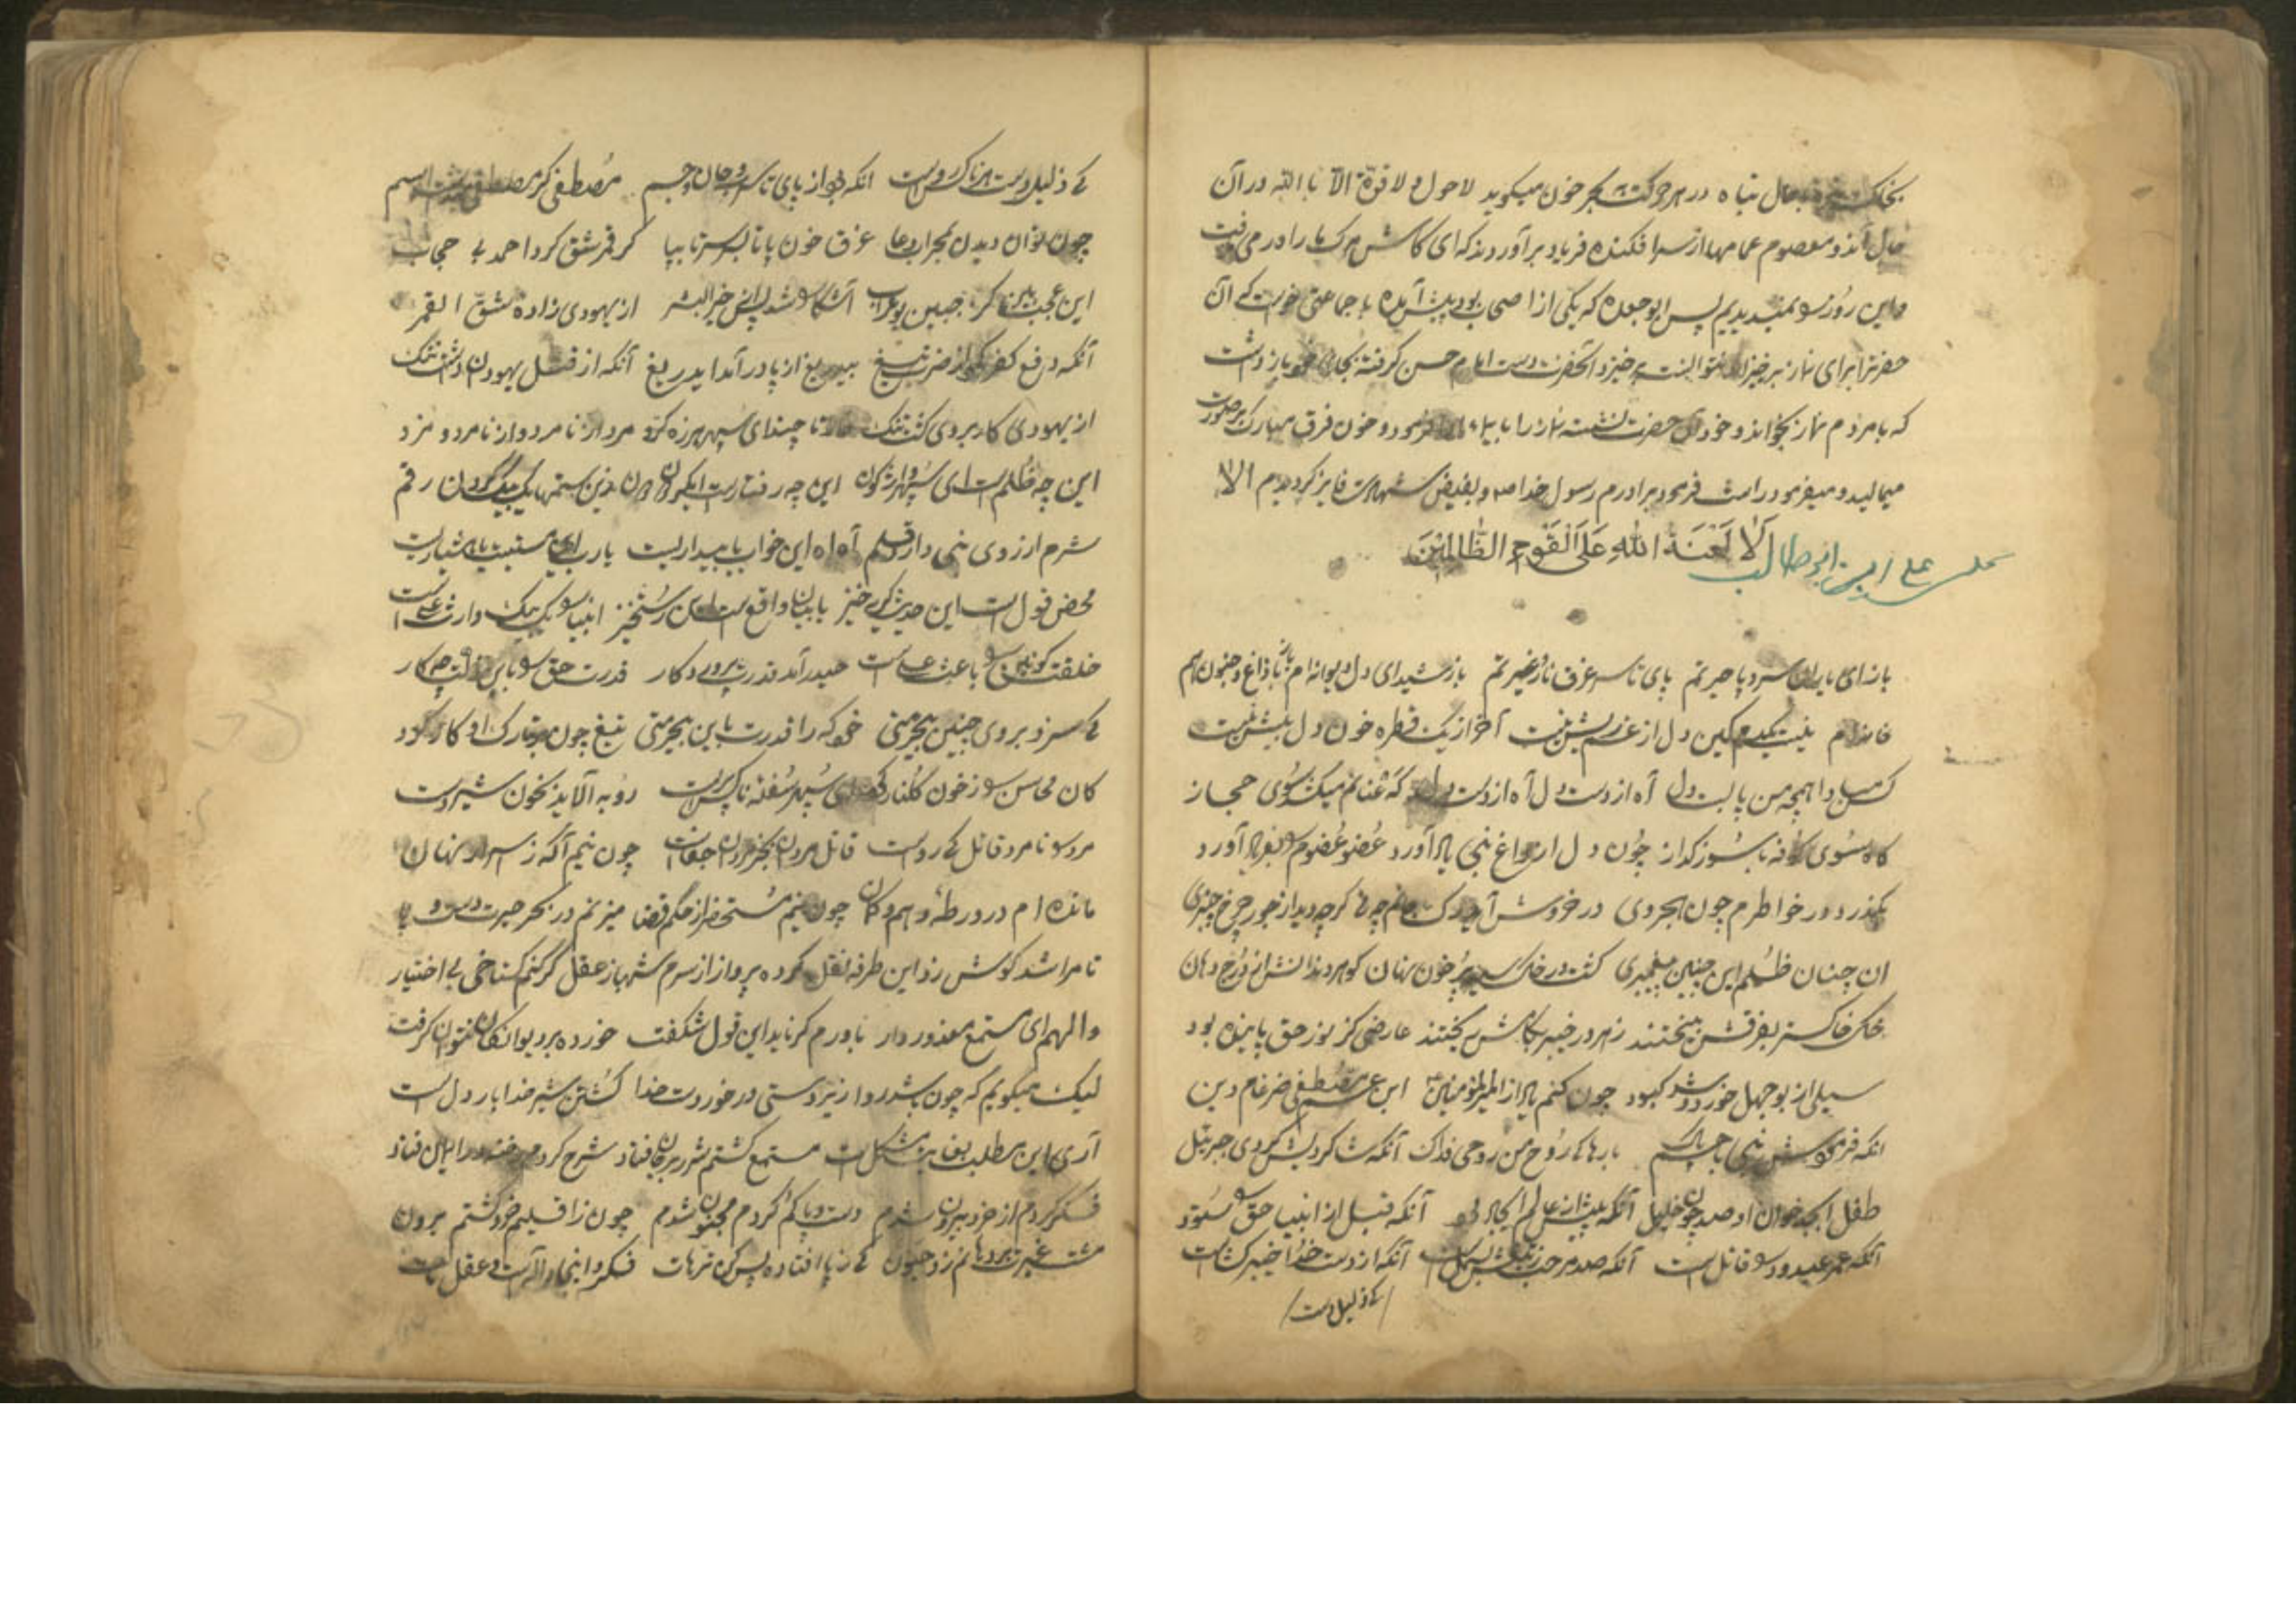 حال تباه در هر حرکت جگر خون میگوید لاحول و لا قوة الا بالله در آن
حال آندو معصوم عمامها از سر افکنده فریاد برآوردند که ای کاش مرک ما را در می یافت
و این روز را نمیدیدیم پس ابو جعده که یکی از اصحاب بود پیش آمده با جماعتی خواست که آن
حضرترا برای نماز برخیزاند نتوانست برخیزد آنحضرت دست امام حسن گرفته بجای خود بازداشت
که با مردم نماز بخواند و خود آن حضرت نشسته نماز را بایماء ادا فرمود و خون فرق مبارک بر صورت
میمالید و میفرمود راست فرمود برادرم رسول خدا ص و بفیض شهادت فایز گردیدم الا
الا لعنة الله علی القوم الظالمین
علی ابن ابو طالب
باز ای یاران سر و پا حیرتم پای تا سر غرق نار غیرتم باز شیدای دل دیوانه ام با داغ و جنون هم
خانه ام نیست یکدم کین دل از غم ریش نیست آخر از یک قطره خون دل بیش نیست
کس مبادا همچو من پا بست دل آه از دست دل آه از دست دل که عنانم میکشد سوی حجاز
گاه سوی کوفه با سوز و گداز چون دل از داغ نبی یاد آورد عضو عضوم را بفریاد آورد
بگذرد در خاطرم چون ابجدوی در خروش آید رک جانم چو نی کرچه دید از جور چرخ چنبری
آن چنان ظلم این چنین پیغمبری گشت در خاک سیه پر خون نهان گوهر دندانش از درج دهان
خاک خاکستر بفرقش بیختند زهر در خیبر بکامش ریختند عارضی کز نور حق پاینده بود
سیلی از بوجهل خورد و شد کبود چون کنم یاد از امیر المؤمنین ابن عم مصطفی ضرغام دین
آنکه فرمودش نبی با چشم پاک بارها کای روح من روحی فداک آنکه شاگردیش کردی جبرئیل
طفل ابجد خوان او صد چون خلیل آنکه پیش از عالم ایجاد بود آنکه قبل از انبیا حق را ستود
آنکه عمرو عبدود را قاتل است آنکه صد مرحب ز تیغش بسمل است آنکه از دست خدا خیبر گشاست
کی ذلیل دست
کی ذلیل دست هر ناکس رواست آنکه بود از پای تا سر جان و جسم مصطفی گر مصطفی میداشت اسم
چون توان دیدن بمحراب دعا غرق خون پا تا بسر سر تا بپا گر قمر شق کرد احمد بی حجاب
این عجب بین کز جبین بوتراب آشکارا شد پس از خیر البشر از یهودی زاده شق القمر
آنکه دفع کفر کرد از ضرب تیغ بیدریغ از پا درآمد ایدریغ آنکه از قتل یهودان داشت ننک
از یهودی کار بر وی گشت تنک تا چند ای سپهر هرزه گرد مرد از نامرد و از نامرد مرد
این چه ظلم است ای سپهر واژگون این چه رفتار است ای گردون دون زین ستمها یک بیک گردان رقم
شرم از روی نبی دار ای قلم آه اه این خواب یا بیداریست یا رب این مستیست یا هشیاریست
محض قول است این حدیث گریه خیز یا بیان واقع است این رستخیز انبیا را یک بیک وارث علی است
خلقت کونین را باعث علی است حیدر آمد قدرت پروردگار قدرت حق را باین ذلت چکار
کی سزد بر روی چنین بیحرمتی خود که را قدرت باین بیحرمتی تیغ چون بر تارک او کار کرد
کان محاسن را ز خون گلنار کرد ای سپهر سفله ناکس پرست روبه آلاید بخون شیر دست
مرد را نامرد قاتل کی رواست قاتل مردان بجز مردان جفاست چون نیم آگه ز اسرار نهان
مانده ام در ورطه وهم و گمان چون نیم مستحضر از حکم قضا میزنم در بحر حیرت دست و پا
تا مرا شد گوش زد این طرفه نقل کرده پرواز از سرم شهباز عقل گر کنم گستاخی بی اختیار
والهم ای مستمع معذور دار باورم گر ناید این قول شگفت خورده بر دیوانگان نتوان گرفت
لیک میگویم که چون باشد روا زیردستی در خور دست خدا کشتن شیر خدا بار دل است
آری این مطلب بغایت مشکل است مستمع گشتم شرر بر جان فتاد شرح کردم رخنه در ایمان فتاد
فکر کردم از خرد بیرون شدم دست و پا گم کردم مجنون شدم چون ز اقلیم خرد گشتم برون
مشت غیرت بر دهانم زد جنون کی ز پا افتاده پس کن ترهات فکر در اینجا و الت و عقل مات